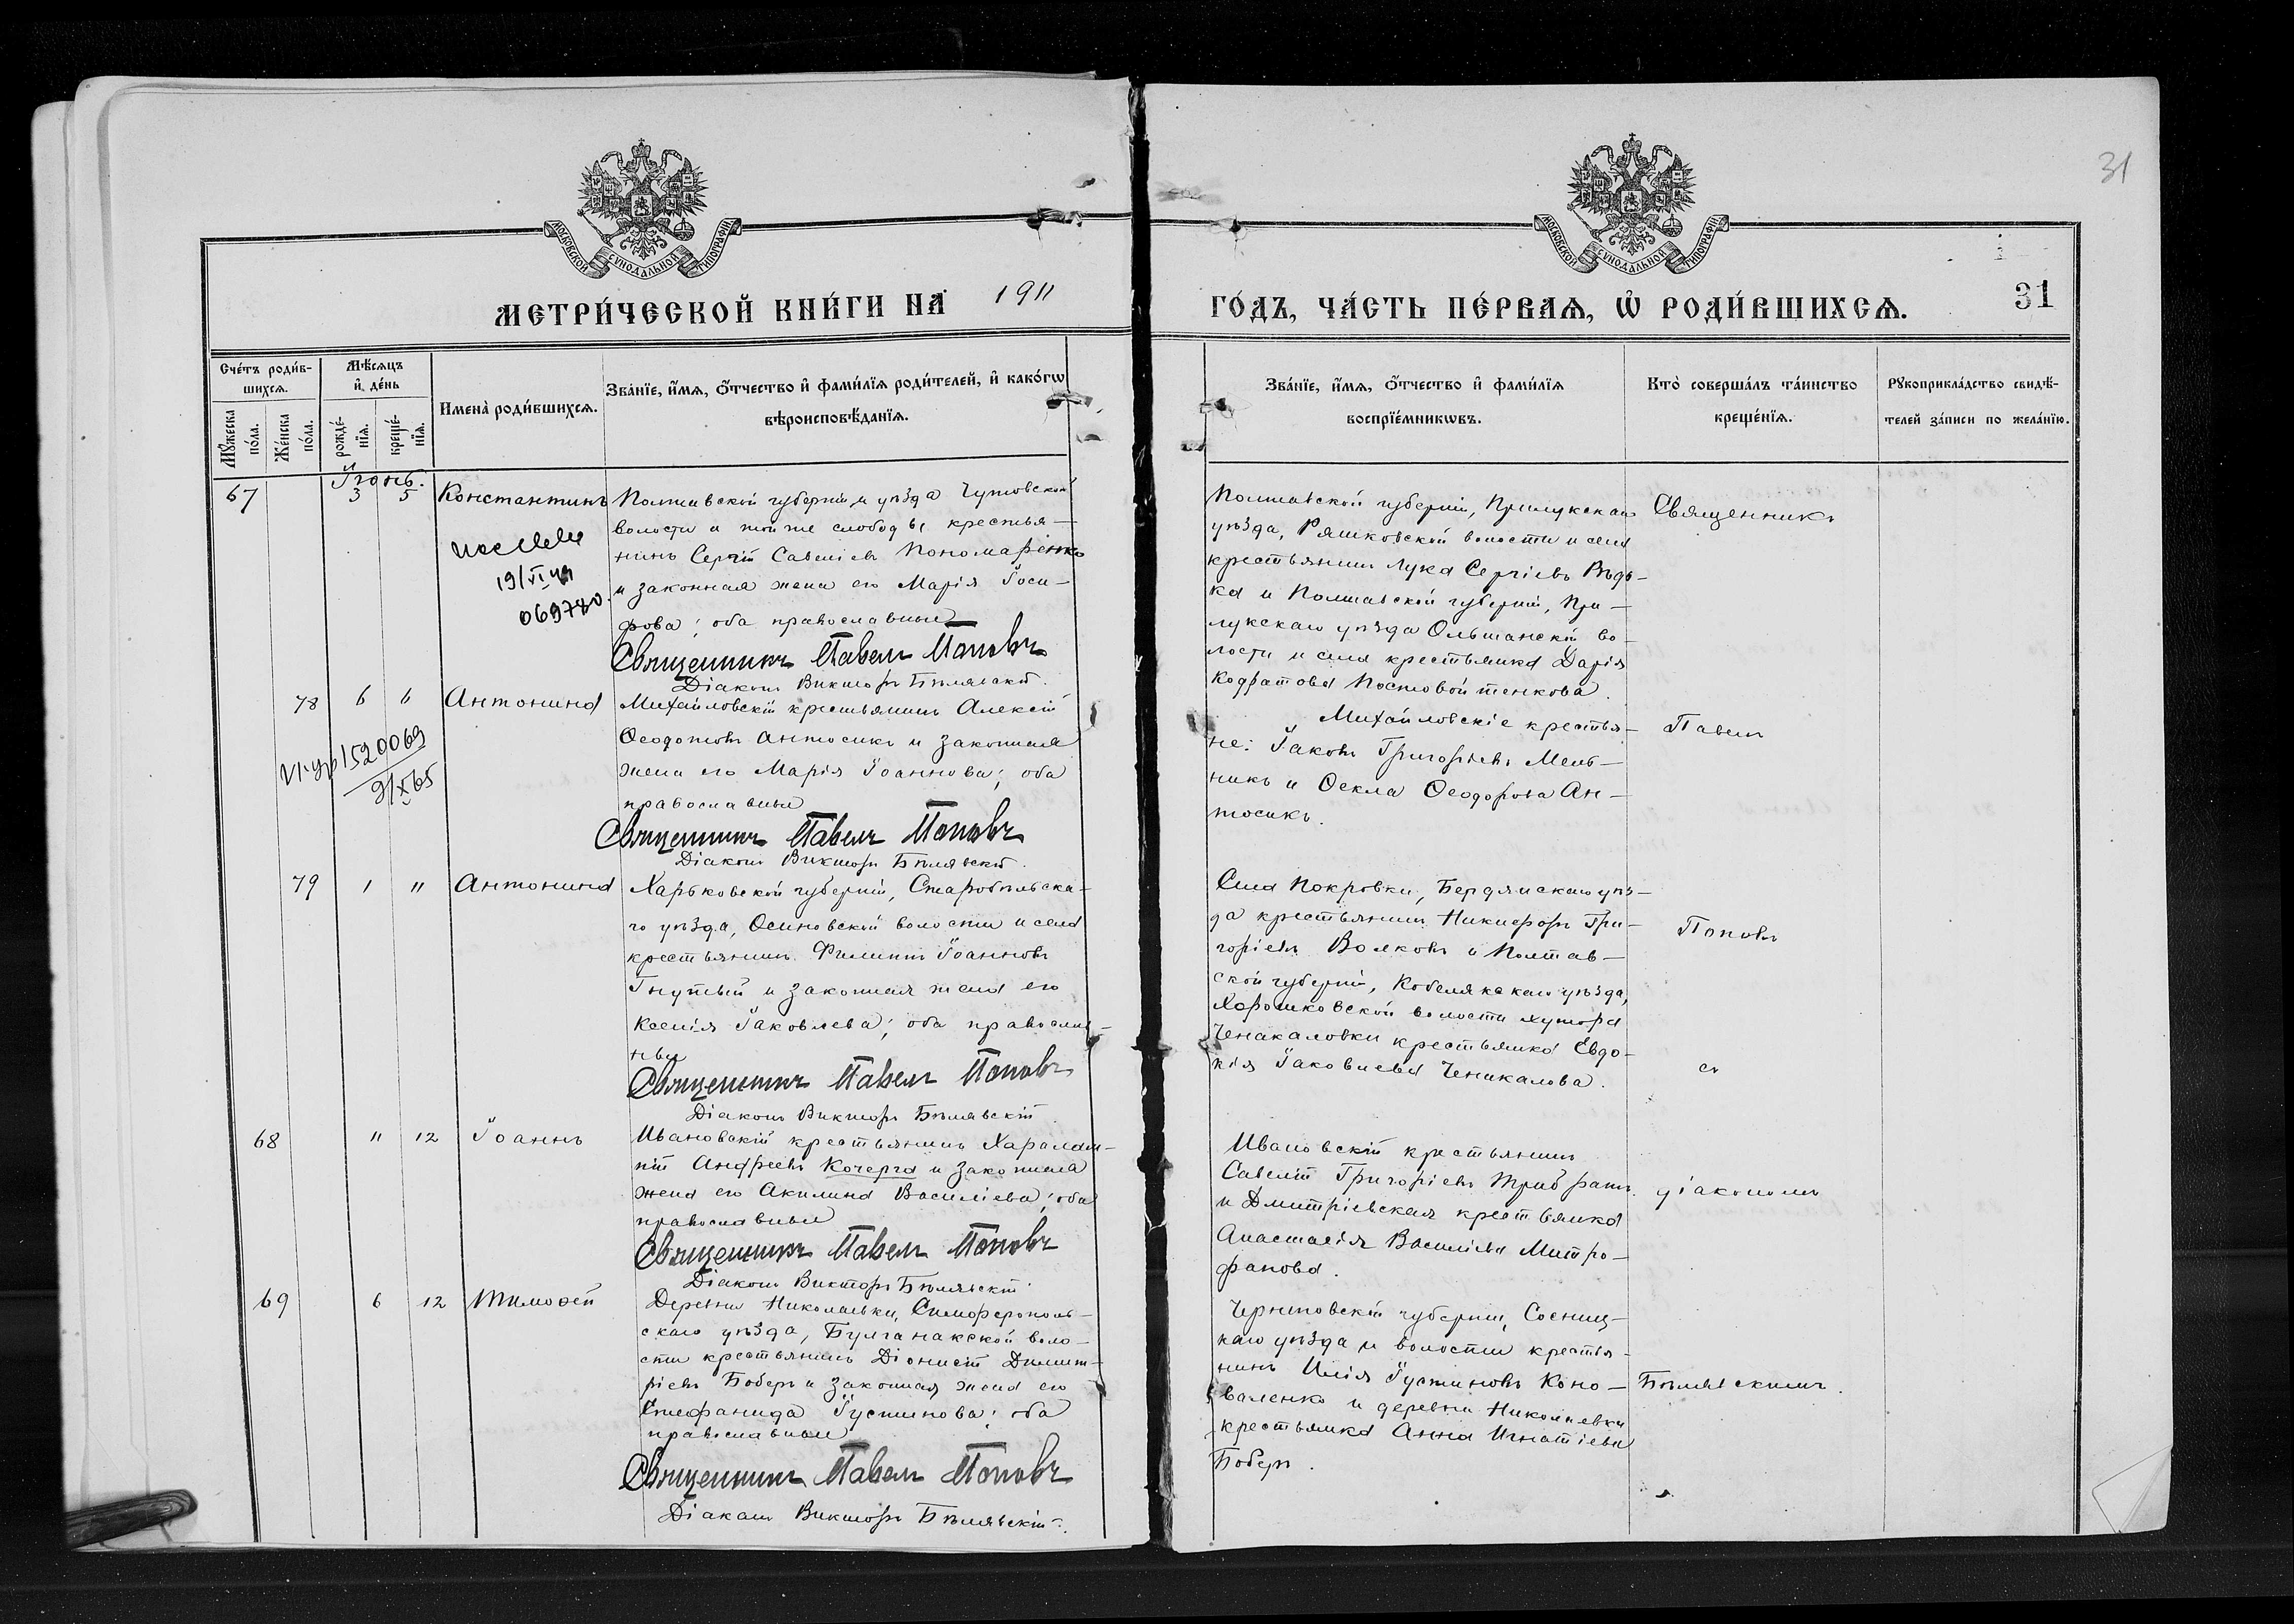 31
МОСКОВСКОЙ СѴНОДАЛЬНОЙ ТИПОГРАФІИ
МОСКОВСКОЙ СѴНОДАЛЬНОЙ ТИПОГРАФІИ
МЕТРИ́ЧЕСКОЙ КНИ́ГИ НА 1911
ГО́ДЪ, ЧА́СТЬ ПЕ́РВАѦ, Ѡ РОДИ́ВШИХСѦ.
31
Сче́тъ роди́в-
шихсѧ.
Мꙋ́жеска по́ла.
Же́нска по́ла.
Мѣ́сѧцъ
и҆ де́нь
рожде́-
нїѧ.
креще́-
нїѧ.
И҆мена̀ роди́вшихсѧ.
Зва́нїе, и҆́мѧ, ѻ҆́тчество и҆ фами́лїѧ роди́телей, и҆ како́гѡ
вѣроисповѣ́данїѧ.
Зва́нїе, и҆́мѧ, ѻ҆́тчество и҆ фами́лїѧ
воспрїе́мникѡвъ.
Кто̀ соверша́лъ та́инство
креще́нїѧ.
Рꙋкоприкла́дство свидѣ́-
телей за́писи по жела́нїю.
Іюнь.
67 3 5 Константинъ
19/VI
069780.
Полтавской губерніи и уѣзда Чутовской
волости и той же слободы крестья-
нинъ Сергій Савеліевъ Пономаренко
и законная жена его Марія Іоси-
фова; оба православные
Священникъ Павелъ Поповъ
Діаконъ Викторъ Бѣлявскій.
Полтавской губерніи, Прилукскаго
уѣзда, Ряшковской волости и села
крестьянинъ Лука Сергіевъ Рѣдь-
ка и Полтавской губерніи, При-
лукскаго уѣзда Ольшанской во-
лости и села крестьянка Дарія
Кодратова
Священникъ
78 6 6 Антонина
1520069
9/X 65
Михайловскій крестьянинъ Алексій
Ѳеодотовъ Антосикъ и законная
жена его Марія Іоаннова; оба
православные
Священникъ Павелъ Поповъ
Діаконъ Викторъ Бѣлявскій.
Михайловскіе крестья-
не: Іаковъ Григорьевъ Мель-
никъ и Ѳекла Ѳеодорова Ан-
тосикъ.
Павелъ
79 1 11 Антонина
Харьковской губерніи, Старобѣльска-
го уѣзда, Осиновской волости и села
крестьянинъ Филиппъ Іоанновъ
Гнутый и законная жена его
Ксенія Іаковлева; оба православ-
ные
Священникъ Павелъ Поповъ
Діаконъ Викторъ Бѣлявскій
Села Покровки, Бердянскаго уѣз-
да крестьянинъ Никифоръ Гри-
горіевъ Волковъ и Полтав-
ской губерніи, Кобелякскаго уѣзда,
Хорошковской волости хутора
Ченакаловки крестьянка Евдо-
кія Іаковлева Ченикалова.
Поповъ
съ
68 11 12 Іоаннъ
Ивановскій крестьянинъ Харалам-
пій Андреевъ Кочерга и законная
жена его Акилина Василіева; оба
православные
Священникъ Павелъ Поповъ
Діаконъ Викторъ Бѣлявскій.
Ивановскій крестьянинъ
Савелій Григоріевъ Трибратъ
и Дмитріевская крестьянка
Анастасія Василіева Митро-
фанова.
діакономъ
69 6 12 Тимоѳей
Деревни Николаевки, Симферополь-
скаго уѣзда, Булганакской воло-
сти крестьянинъ Діонисій Димит-
ріевъ Боберъ и законная жена его
Стефанида Іустинова; оба
православные
Священникъ Павелъ Поповъ
Діаконъ Викторъ Бѣлявскій.
Черниговской губерніи, Сосниц-
каго уѣзда и волости крестья-
нинъ Илія Іустиновъ Коно-
валенко и деревни Николаевки
крестьянка Анна Игнатіева
Боберъ.
Бѣлявскимъ.